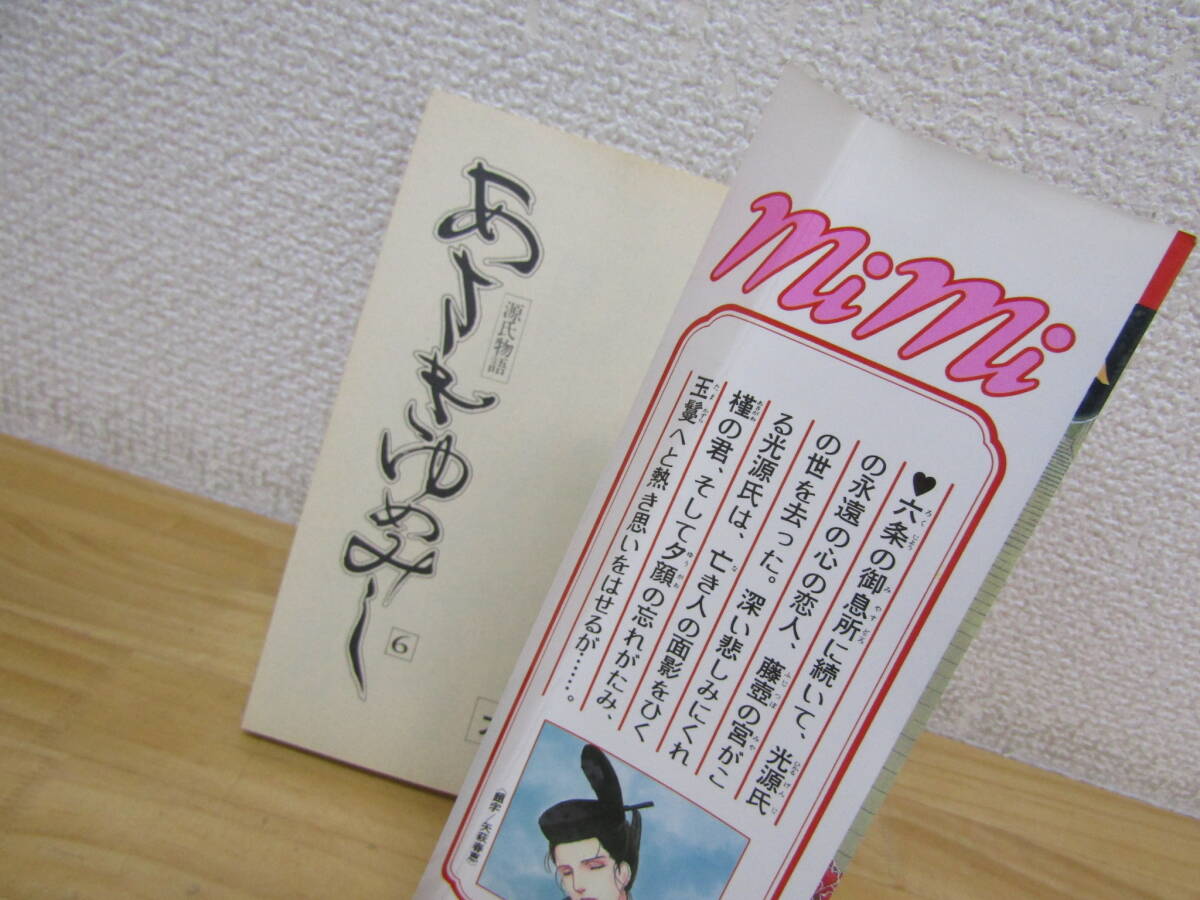 あさきゆめみし
源氏物語
6
mimi
♥六条の御息所に続いて、光源氏
の永遠の心の恋人、藤壺の宮がこ
の世を去った。深い悲しみにくれ
る光源氏は、亡き人の面影をひく
槿の君、そして夕顔の忘れがたみ、
玉鬘へと熱き思いをはせるが……。
(題字/矢萩春恵)